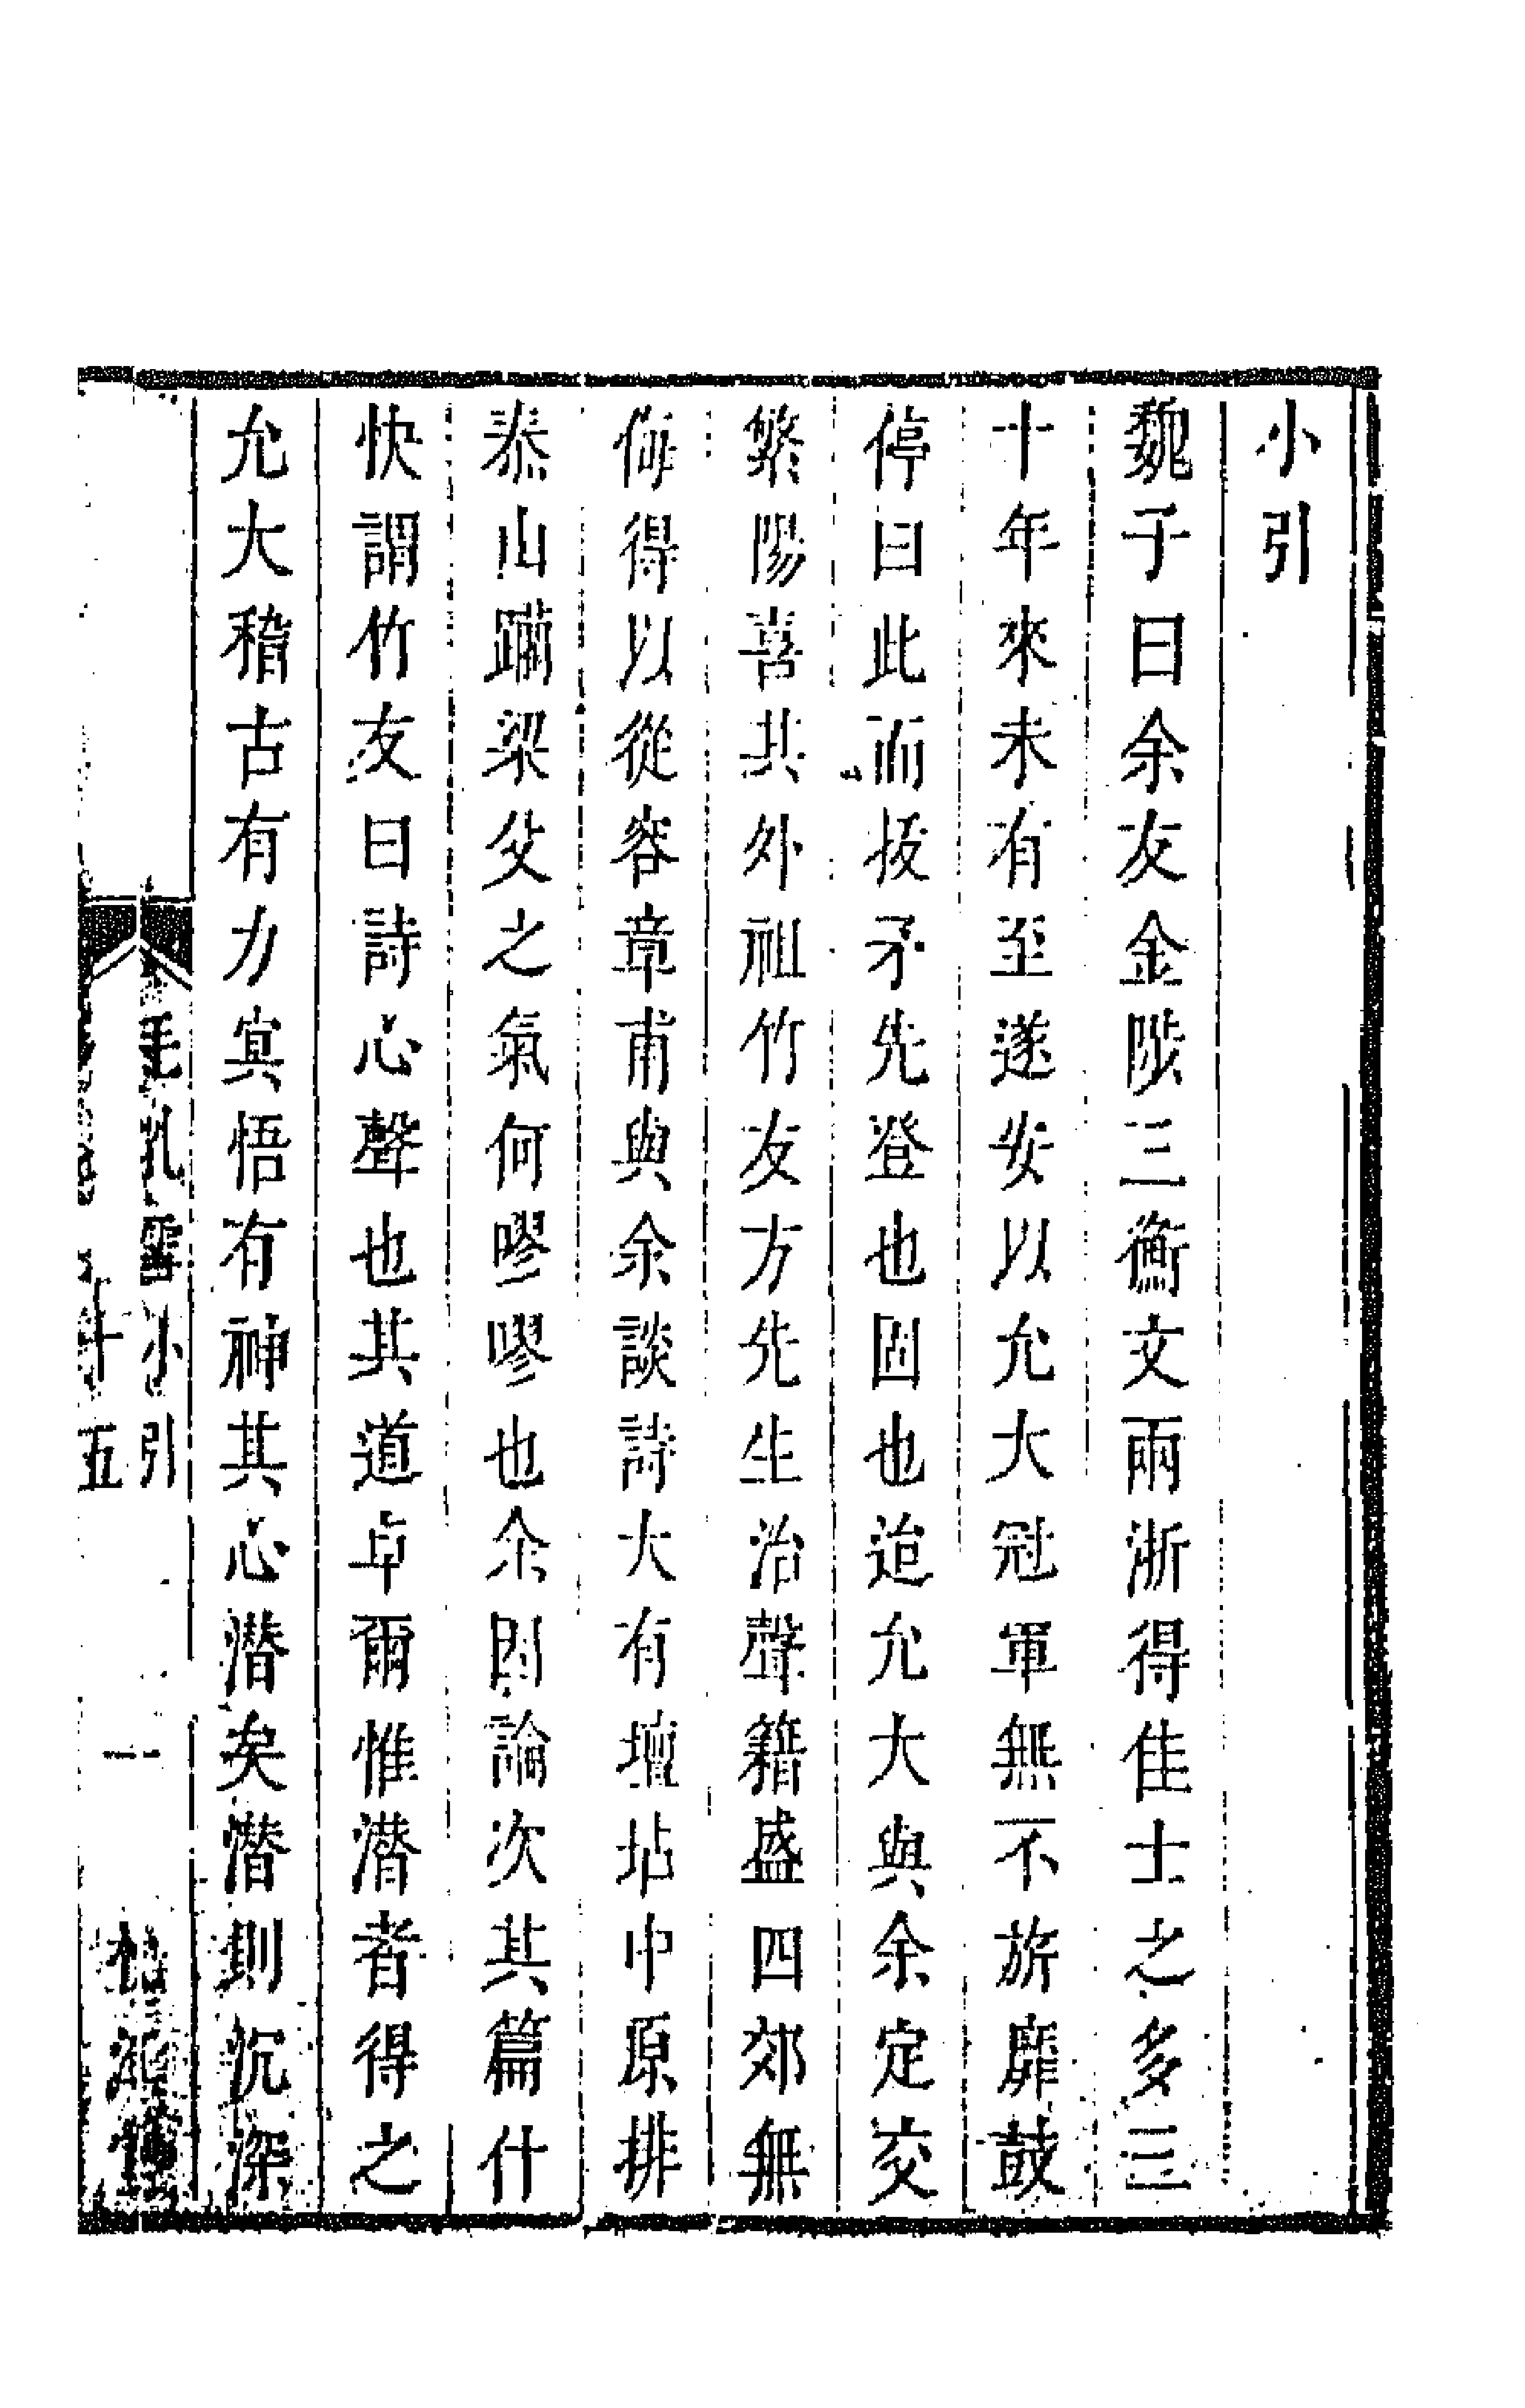 小引
魏子曰余友金陟三衡文兩浙得佳士之多三
十年來未有至遂安以允大冠軍無不旂靡鼓
停曰此而拔矛先登也固也迨允大與余定交
繁陽喜其外祖竹友方先生治聲籍盛四郊無
侮得以從容章甫與余談詩大有壇坫中原排
泰山躪梁父之氣何嘐嘐也余因論次其篇什
快謂竹友曰詩心聲也其道卓爾惟潛者得之
允大稽古有力寘悟有神其心潛矣潛則沉深
毛孔 小引
十五
一